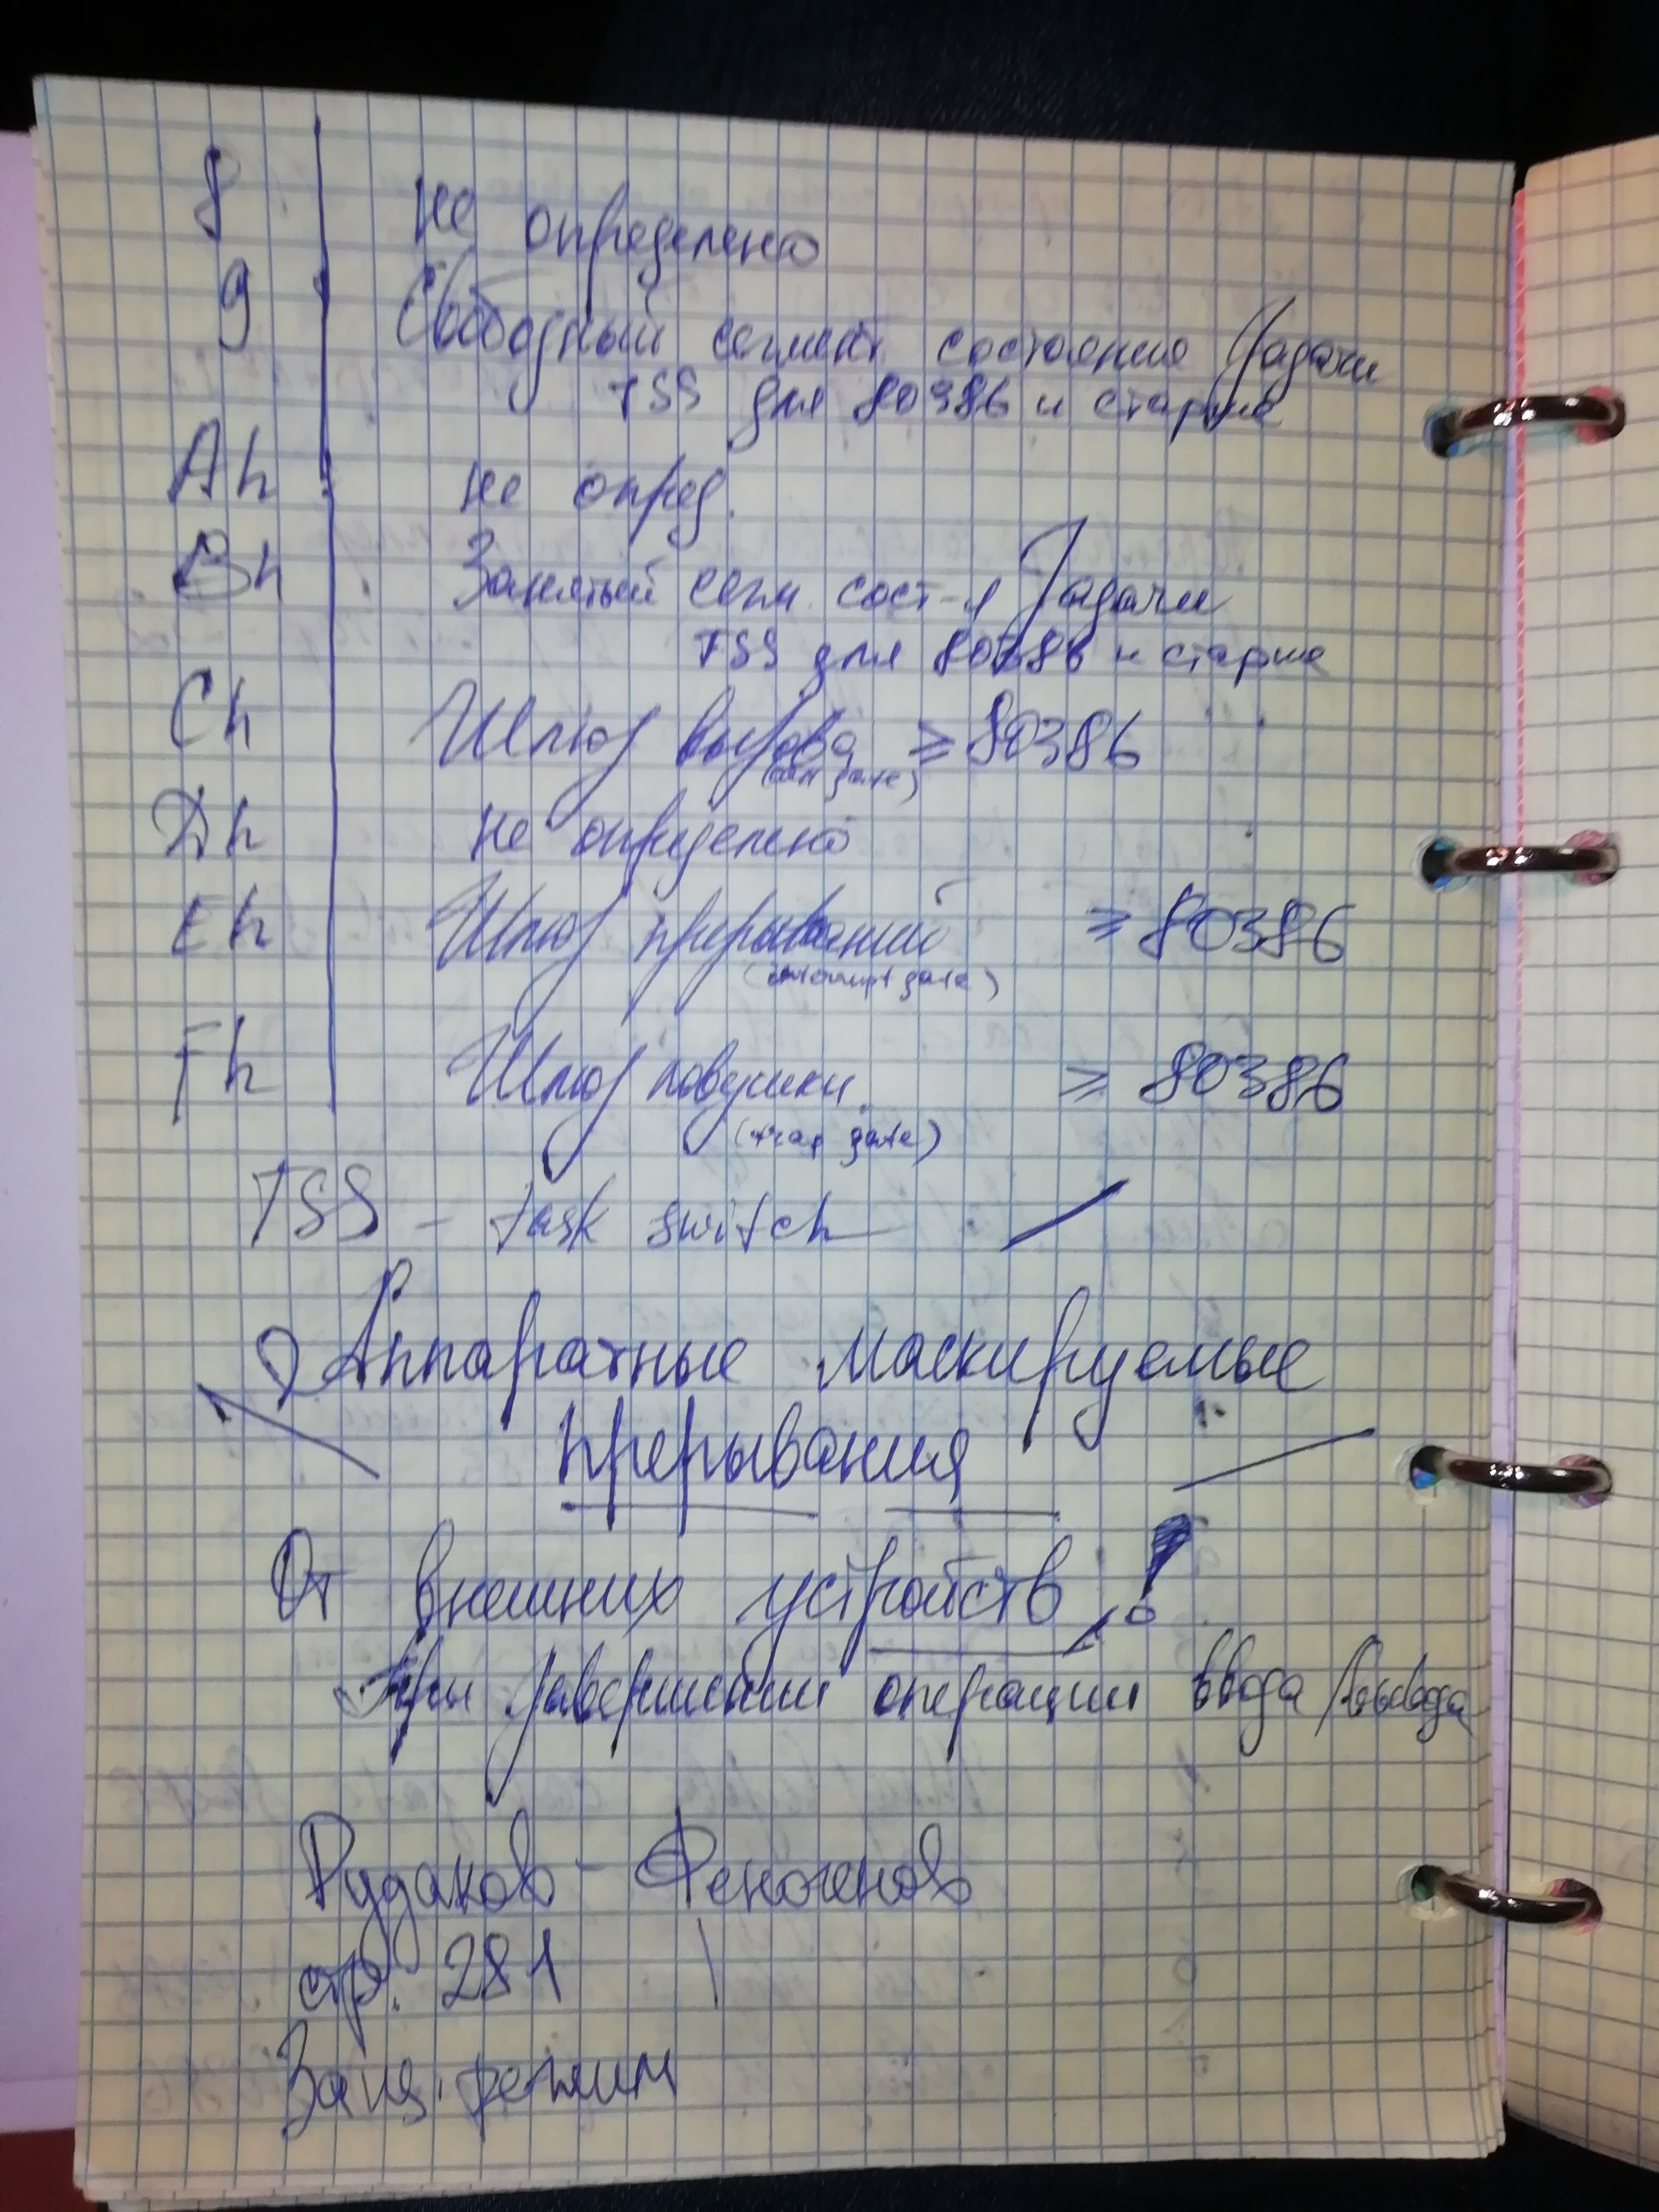 8 Не определено
9 Свободный сегмент состояния задачи
TSS для 80386 и старше
Ah не опред.
Bh Занятый сегм. сост-я задачи
TSS для 80386 и старше
Ch Шлюз вызова ≥ 80386
(call gate)
Dh не определено
Eh Шлюз прерываний ≥ 80386
(interrupt gate)
Fh Шлюз ловушки ≥ 80386
(trap gate)
TSS - task switch
Аппаратные маскируемые
прерывания
От внешних устройств !
При завершении операции ввода/вывода
Рудаков - Финогенов
стр. 281
Защ. режим